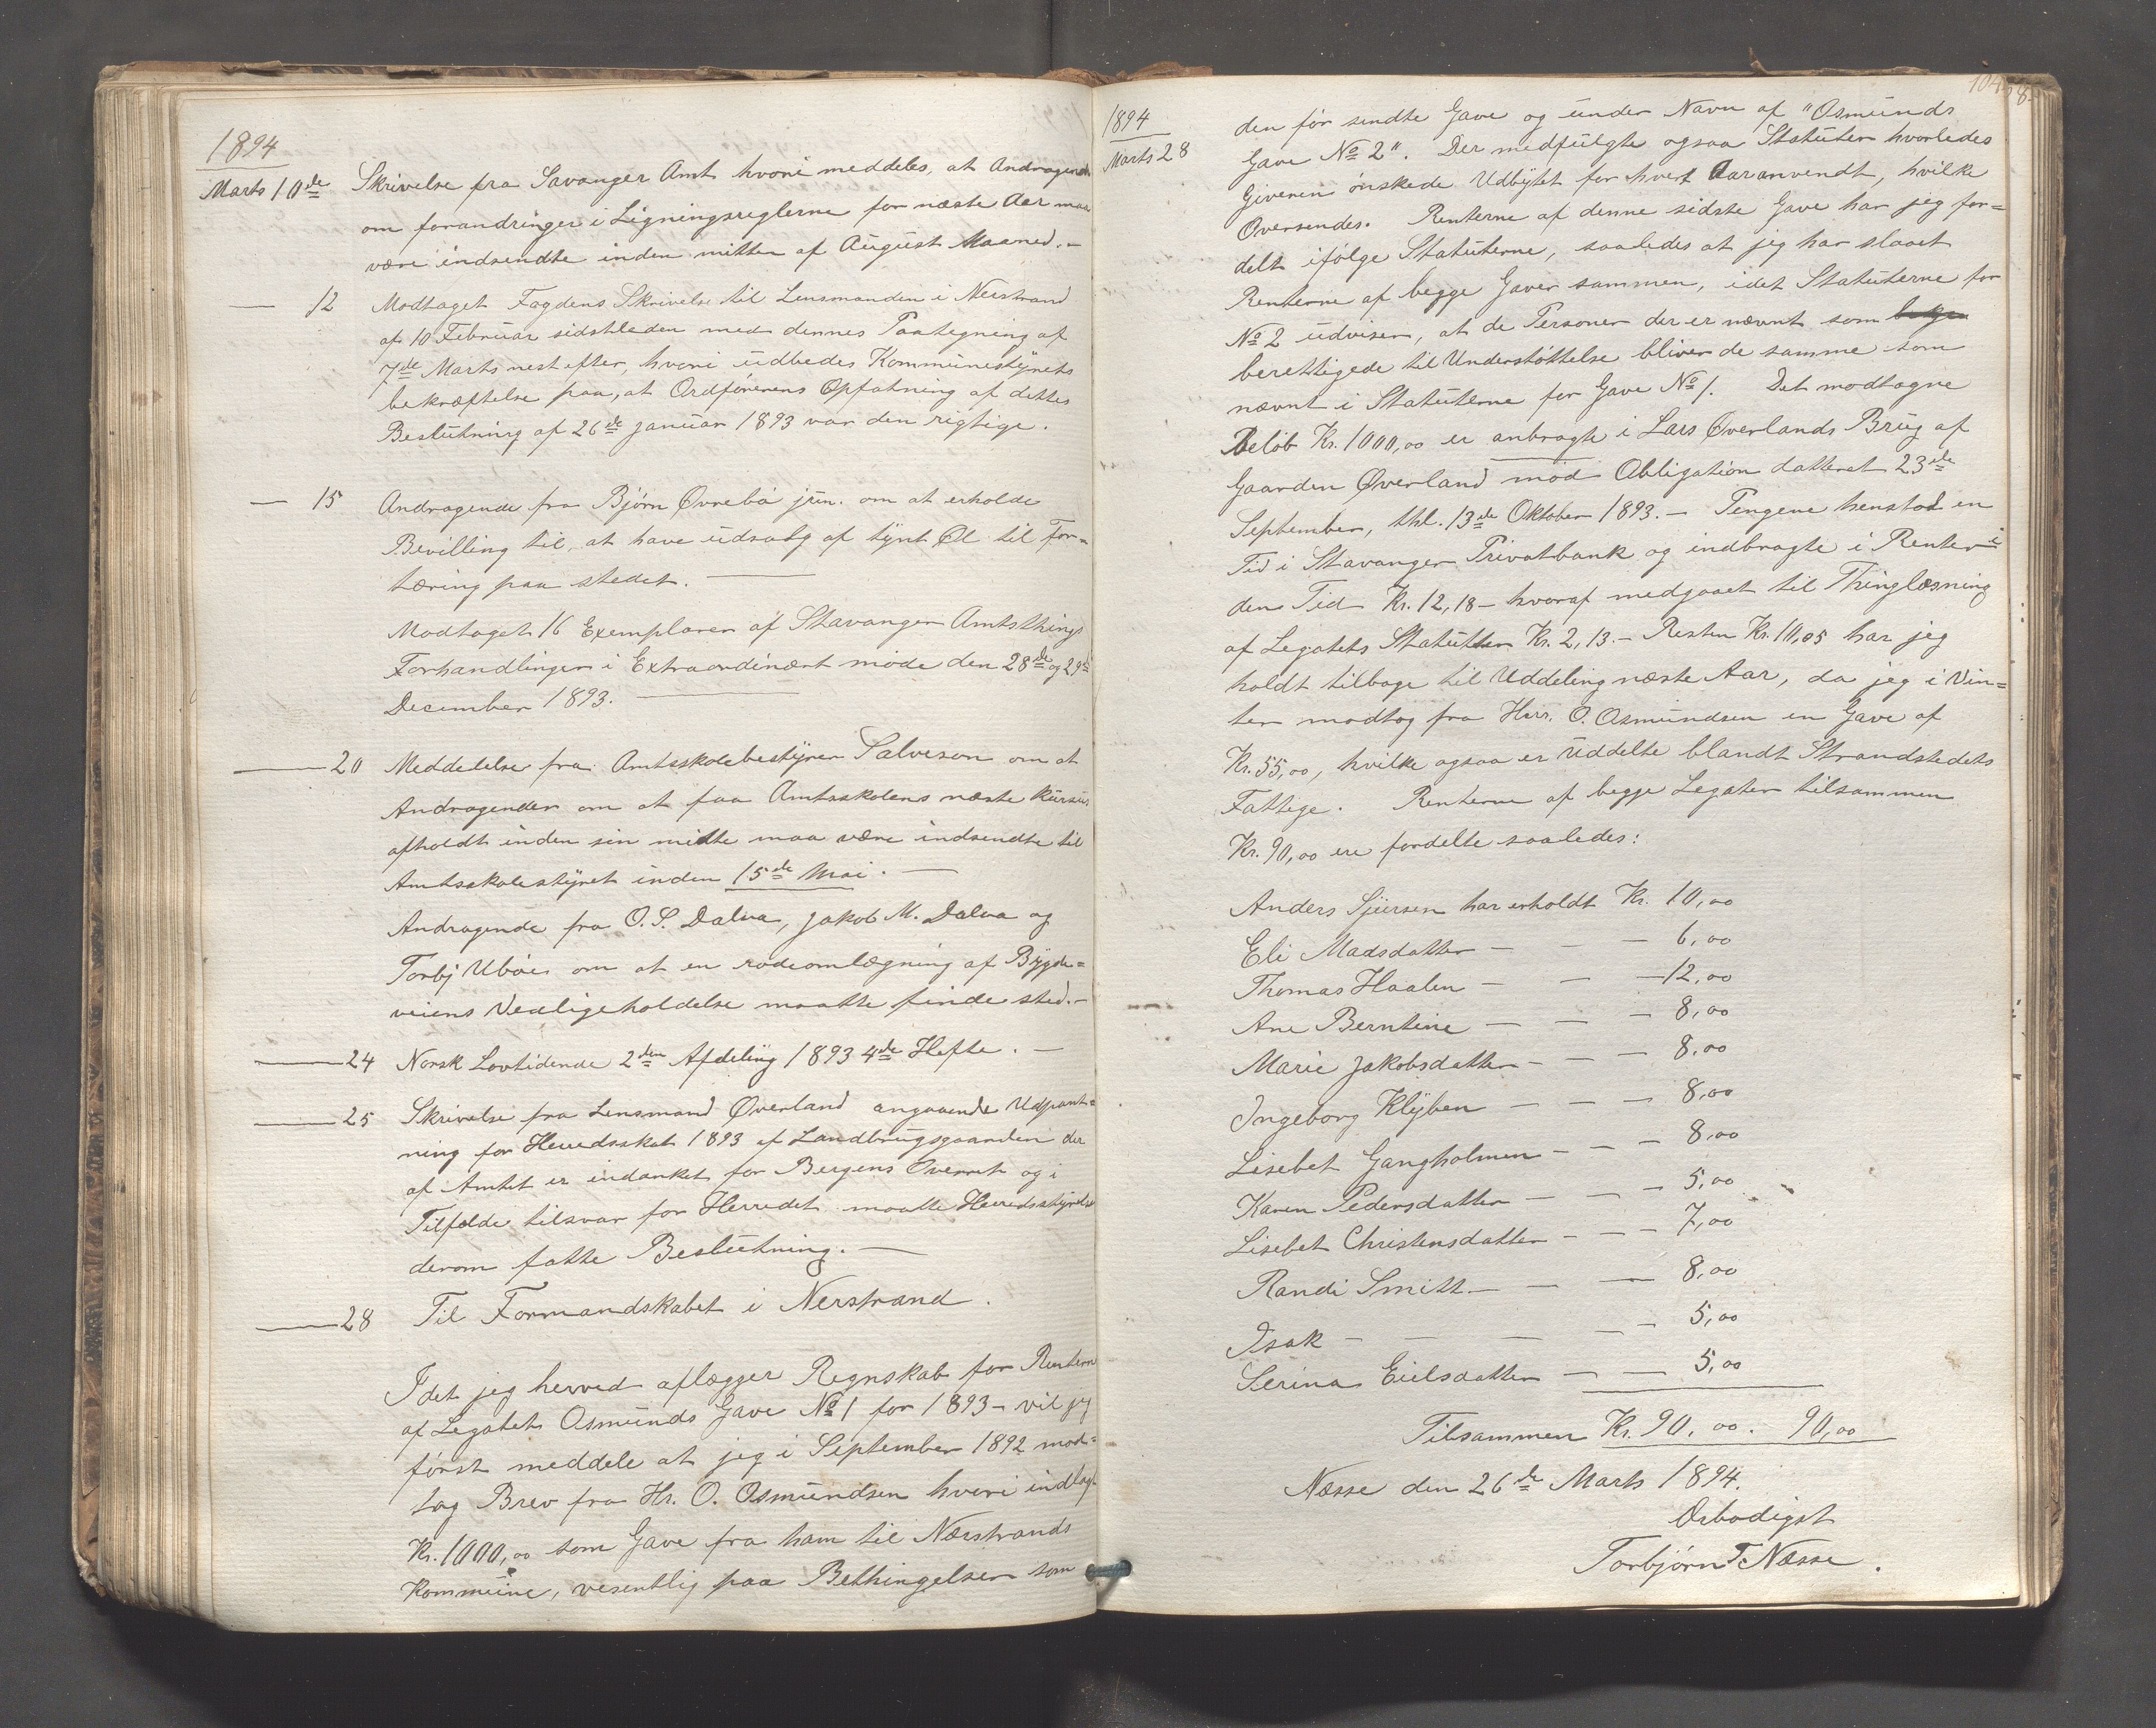 1894
Marts 10de Skrivelse fra Savanger Amt hvori meddeles, at Andragende
om forandringer i Ligningsreglerne for næste Aar maa
være indsendte inden mitten af August Maaned.-
— 12 Modtaget Fogdens Skrivelse til Lensmanden i Nerstrand
af 10 Februar sidstleden med dennes Paategning af
7de Marts nest efter, hvori udbedes Kommunestyrets
bekræftelse paa, at Ordførerens Opfatning af dettes
Beslutning af 26de Januar 1893 var den rigtige.
— 15 Andragende fra Bjørn Øvrebø jun. om at erholde
Bevilling til, at have udsalg af tynt Øl til For=
tæring paa stedet. —
Modtaget 16 Exemplarer af Stavanger Amtsthings
Forhandlinger i Extraordinært møde den 28de og 29de
December 1893. —
— 20 Meddelelse fra Amtsskolebestyrer Salveson om at
Andragender om at faa Amtsskolens næste Kursus
afholdt inden sin midte maa være indsendte til
Amtsskolestyret inden 15de Mai. —
Andragende fra O. S. Dalva, Jakob M. Dalva og
Torbj Ubøe om at en rodeomlægning af Bygde=
veiens Vedligeholdelse maatte finde sted.-
— 24 Norsk Lovtidende 2den Afdeling 1893 4de Hefte. —
— 25 Skrivelse fra Lensmand Øverland angaaende Udpant=
ning for Herredsskat 1893 af Landbrugsgaarden der
af Amtet er indanket for Bergens Overret og i
Tilfelde tilsvar for Herredet maatte Herredsstyrelse
derom fatte Beslutning. —
— 28 Til Formandskabet i Nerstrand.
Idet jeg herved aflægger Regnskab for Renterne
af Legatet Osmunds Gave No 1 for 1893 – vil jeg
først meddele at jeg i September 1892 mod=
tog Brev fra Hr. O. Osmundsen hvori indlagt
Kr. 1000,00 som Gave fra ham til Nærstrands
Kommune, vesentlig paa Bethingelser som
104
1894
Marts 28 den før sendte Gave og under Navn af "Osmunds
Gave No 2". Der medfulgte ogsaa Statuter hvorledes
Giveren ønskede Udbytet for hvert Aar anvendt, hvilke
Oversendes. Renterne af denne sidste Gave har jeg for=
delt ifølge Statuterne, saaledes at jeg har slaaet
Renterne af begge Gaver sammen, idet Statuterne for
No 2 udviser, at de Personer der er nævnt som
berettigede til Understøttelse bliver de samme som
nævnt i Statuterne for Gave No 1. Det modtagne
Beløb Kr. 1000,00 er anbragte i Lars Øverlands Brug af
Gaarden Øverland mod Obligation datteret 23de
September, thl. 13de Oktober 1893. — Pengene henstod en
Tid i Stavanger Privatbank og indbragte i Renter i
den Tid Kr. 12,18 – hvoraf medgaaet til Thinglæsning
af Legatets Statutter Kr. 2,13. – Resten Kr. 10,05 har jeg
holdt tilbage til Uddeling næste Aar, da jeg i Vin=
ter modtog fra Hrr. O. Osmundsen en Gave af
Kr. 55,00, hvilke ogsaa er Uddelte blandt Strandstedets
Fattige. Renterne af begge Legater tilsammen
Kr. 90,00 ere fordelte saaledes:
Anders Sjursen har erholdt Kr. 10,00
Eli Madsdatter — — — 6,00
Thomas Haalen — — — 12,00
Ane Berntine — — — 8,00
Marie Jakobsdatter — — — 8,00
Ingeborg Klyben — — — 8,00
Lisebet Gangholmen — — — 8,00
Karen Pedersdatter — — — 5,00
Lisebet Christensdatter — — — 7,00
Randi Smitt — — — 8,00
Isak — — — — — 5,00
Serina Eielsdatter — — 5,00
Tilsammen Kr. 90,00. 90,00
Næsse den 26de Marts 1894.
Ærbødigst
Torbjørn T. Næsse.